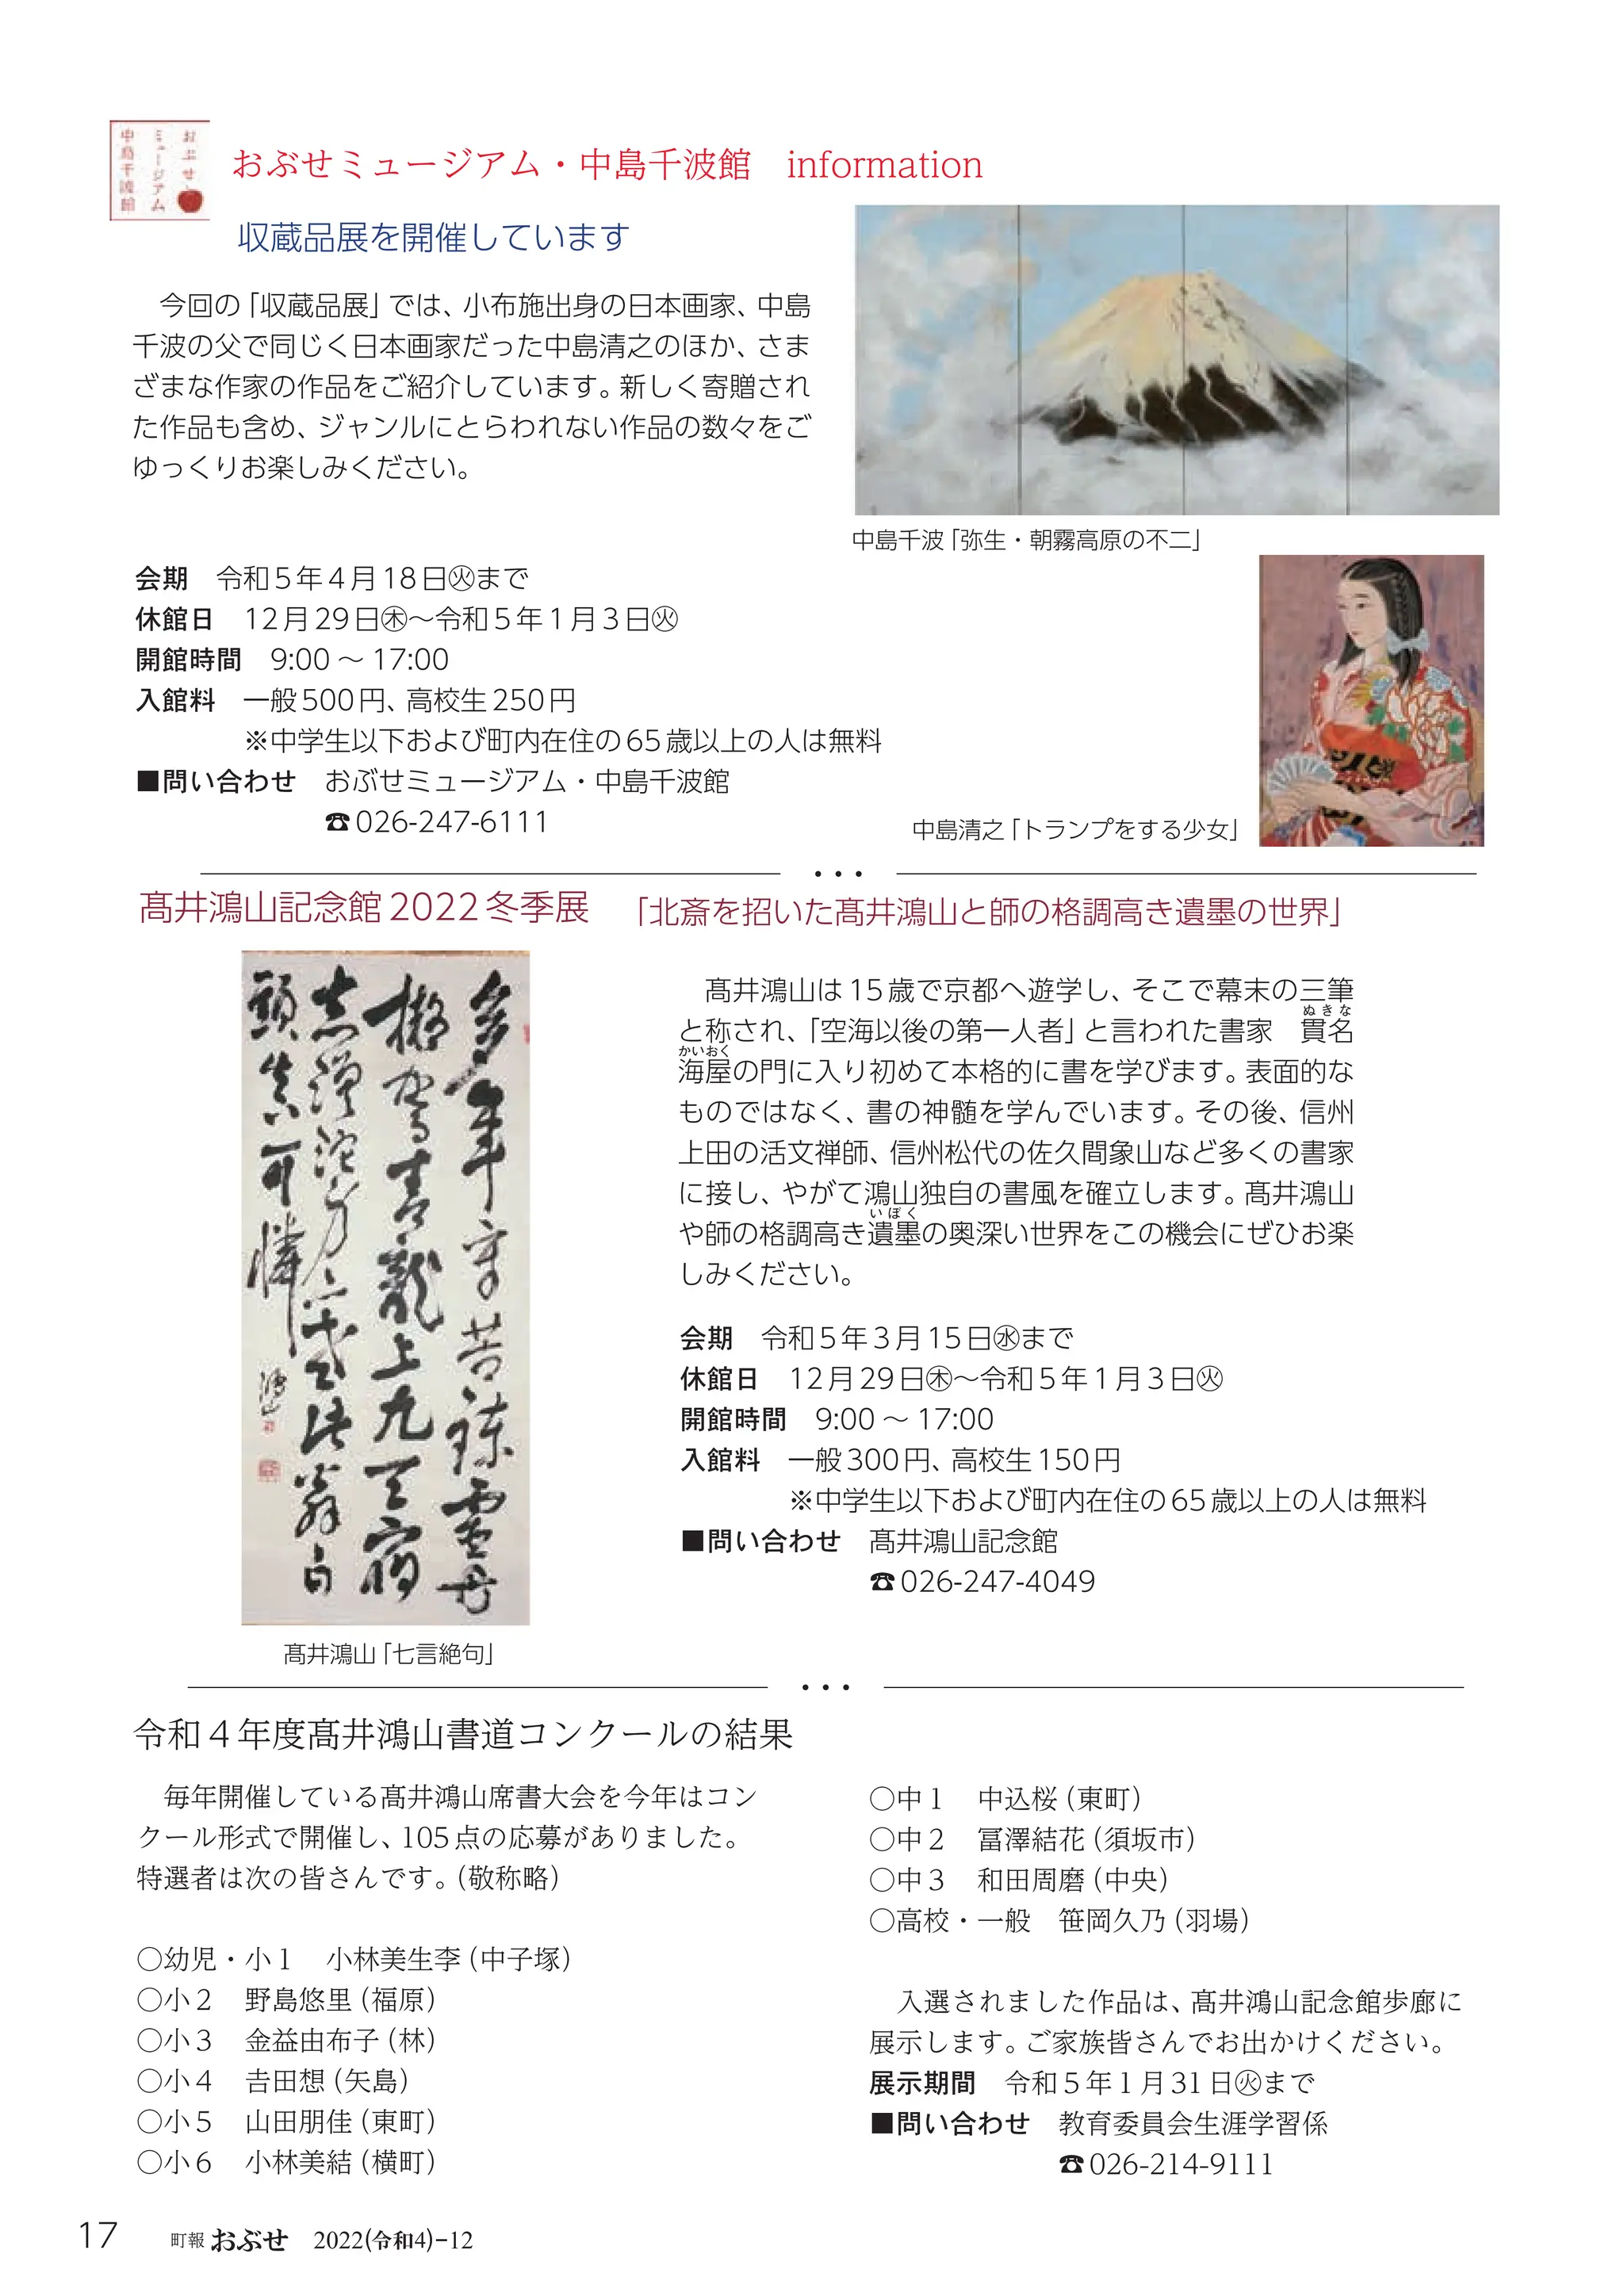 おぶせ
ミュージアム
中島千波館
おぶせミュージアム・中島千波館　information
収蔵品展を開催しています
　今回の「収蔵品展」では、小布施出身の日本画家、中島
千波の父で同じく日本画家だった中島清之のほか、さま
ざまな作家の作品をご紹介しています。新しく寄贈され
た作品も含め、ジャンルにとらわれない作品の数々をご
ゆっくりお楽しみください。
中島千波「弥生・朝霧高原の不二」
会期　令和5年4月18日㊋まで
休館日　12月29日㊍～令和5年1月3日㊋
開館時間　9:00 ～ 17:00
入館料　一般500円、高校生250円
※中学生以下および町内在住の65歳以上の人は無料
■問い合わせ　おぶせミュージアム・中島千波館
☎026-247-6111
中島清之「トランプをする少女」
髙井鴻山記念館2022冬季展　「北斎を招いた髙井鴻山と師の格調高き遺墨の世界」
　髙井鴻山は15歳で京都へ遊学し、そこで幕末の三筆
と称され、「空海以後の第一人者」と言われた書家　貫名
海屋の門に入り初めて本格的に書を学びます。表面的な
ものではなく、書の神髄を学んでいます。その後、信州
上田の活文禅師、信州松代の佐久間象山など多くの書家
に接し、やがて鴻山独自の書風を確立します。髙井鴻山
や師の格調高き遺墨の奥深い世界をこの機会にぜひお楽
しみください。
ぬきな
かいおく
いぼく
会期　令和5年3月15日㊌まで
休館日　12月29日㊍～令和5年1月3日㊋
開館時間　9:00 ～ 17:00
入館料　一般300円、高校生150円
※中学生以下および町内在住の65歳以上の人は無料
■問い合わせ　髙井鴻山記念館
☎026-247-4049
髙井鴻山「七言絶句」
令和４年度髙井鴻山書道コンクールの結果
　毎年開催している髙井鴻山席書大会を今年はコン
クール形式で開催し、105点の応募がありました。
特選者は次の皆さんです。（敬称略）
○幼児・小１　小林美生李（中子塚）
○小２　野島悠里（福原）
○小３　金益由布子（林）
○小４　𠮷田想（矢島）
○小５　山田朋佳（東町）
○小６　小林美結（横町）
○中１　中込桜（東町）
○中２　冨澤結花（須坂市）
○中３　和田周磨（中央）
○高校・一般　笹岡久乃（羽場）
　入選されました作品は、髙井鴻山記念館歩廊に
展示します。ご家族皆さんでお出かけください。
展示期間　令和５年１月31日㊋まで
■問い合わせ　教育委員会生涯学習係
☎026-214-9111
17　町報 おぶせ　2022(令和4)-12